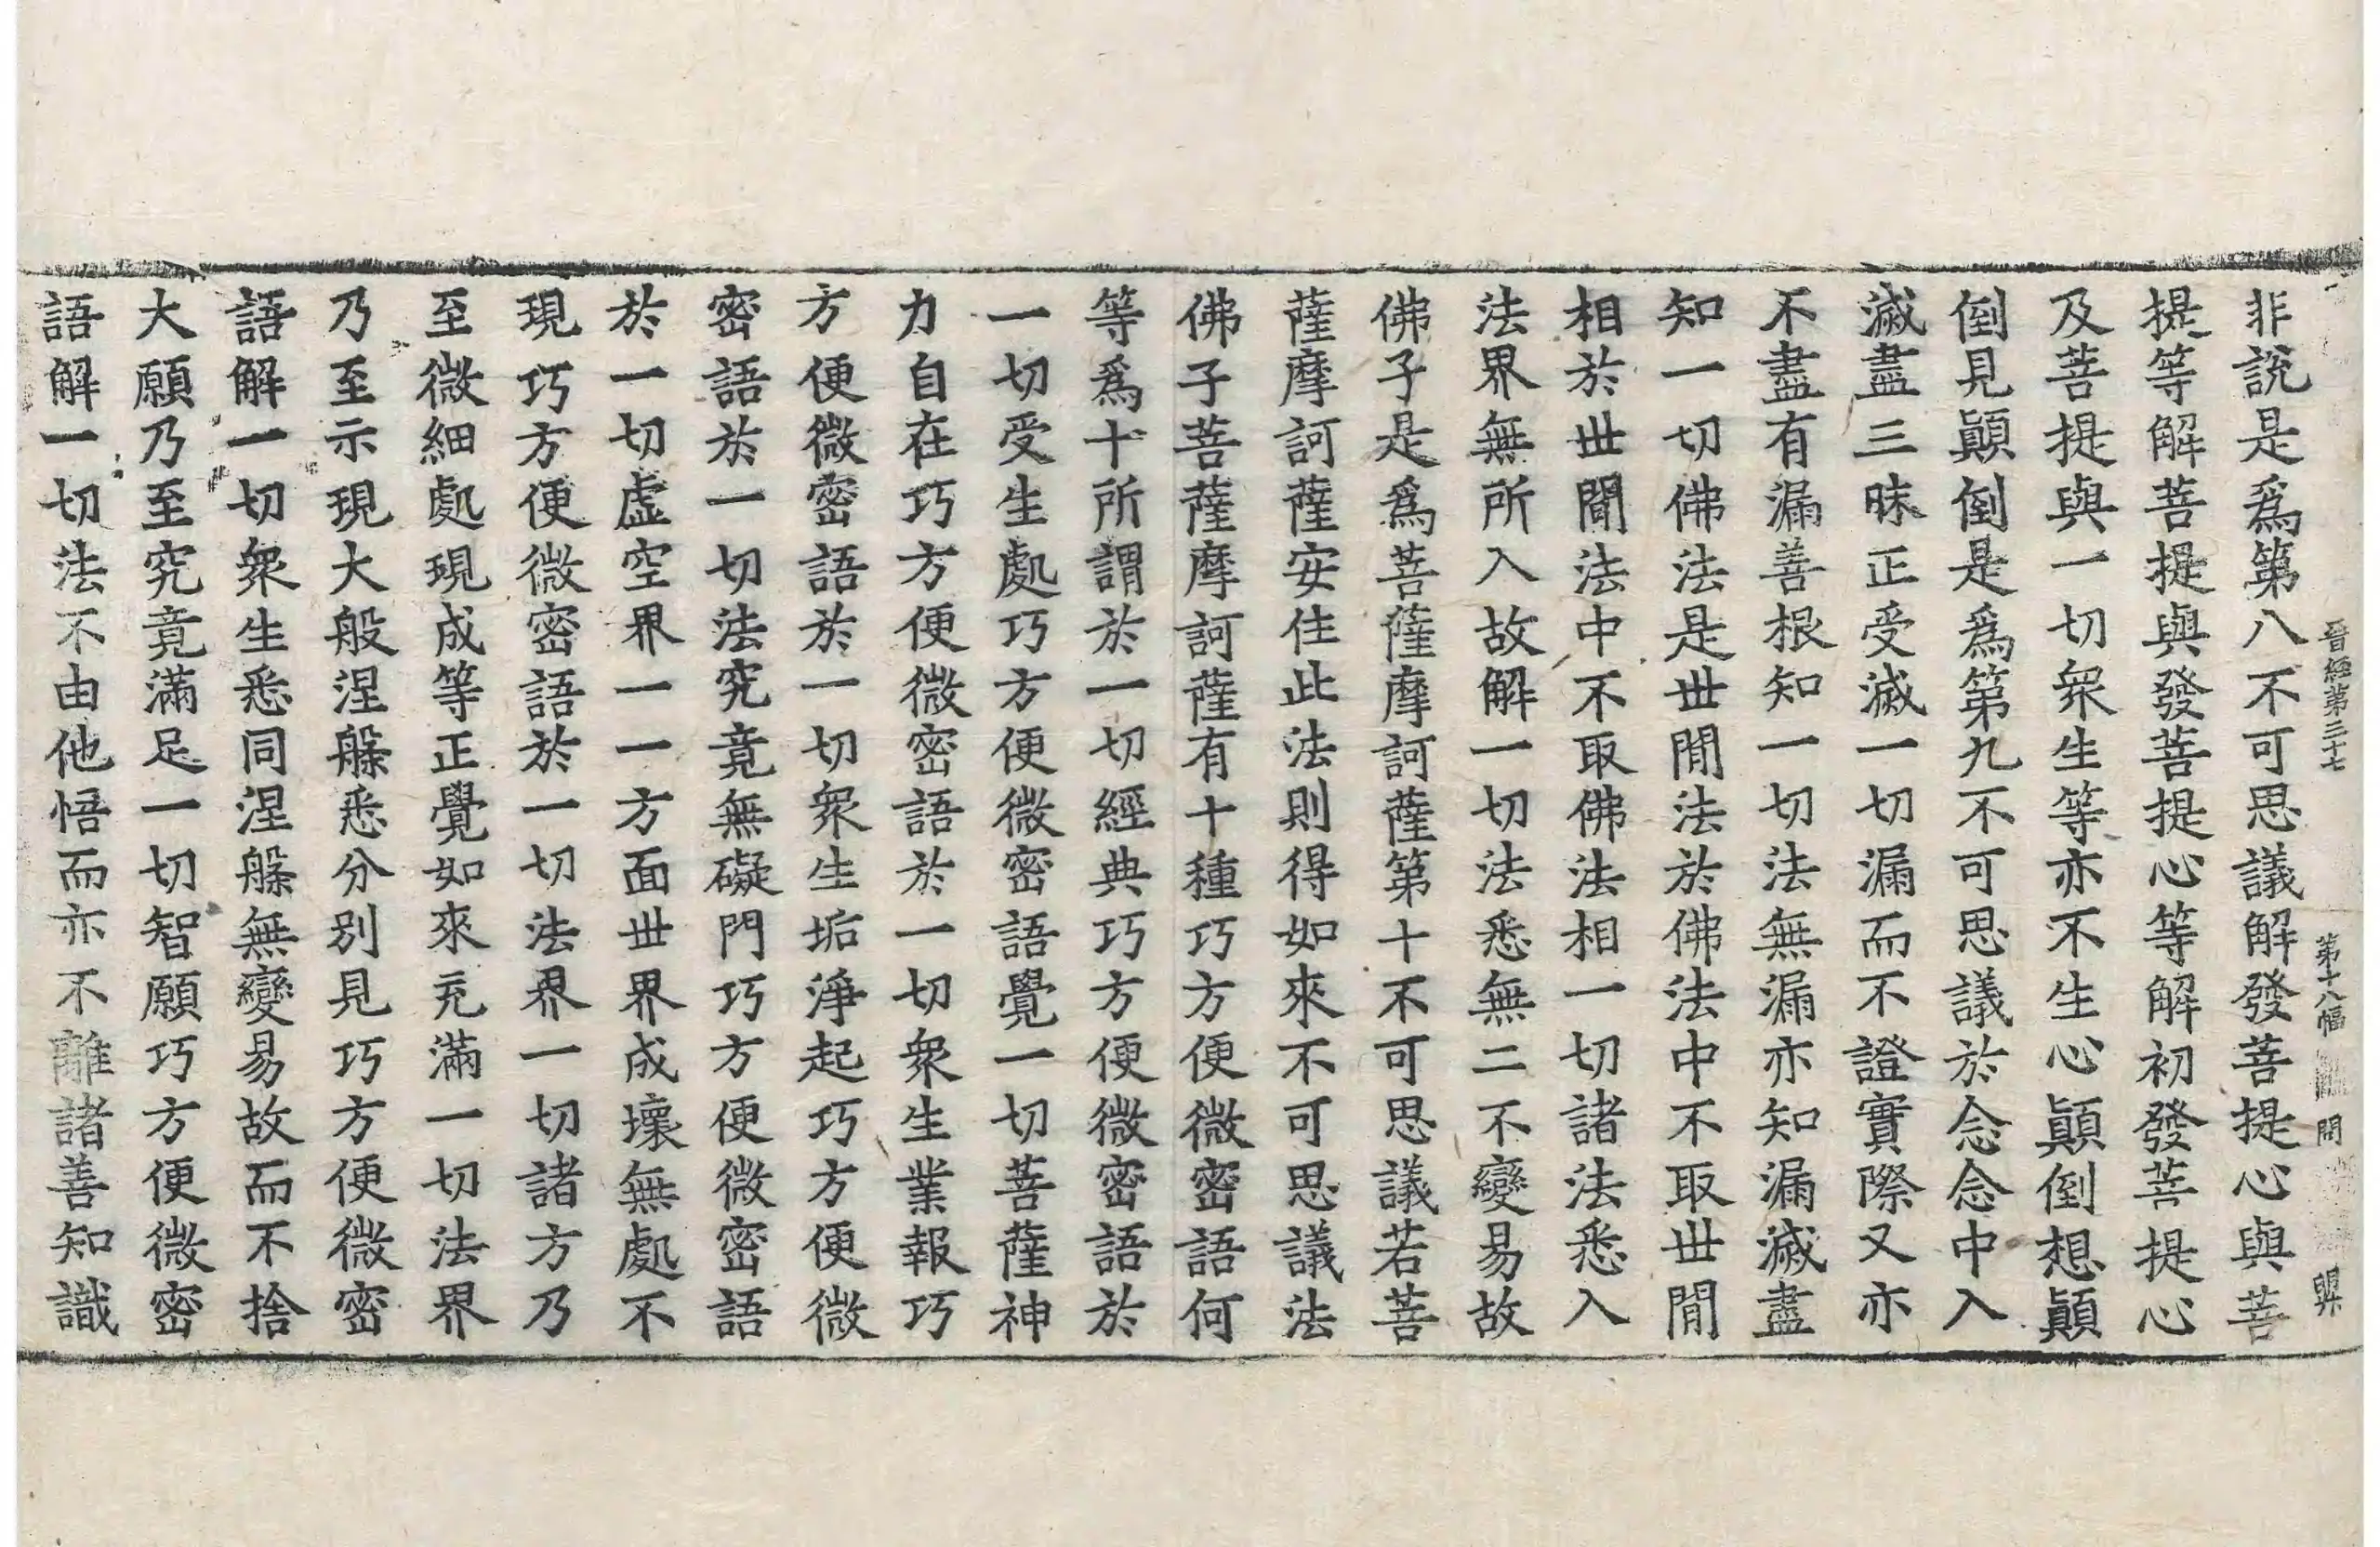 晉經第三十七 第十八幅 問 興
非說是爲第八不可思議解發菩提心與菩
提等解菩提與發菩提心等解初發菩提心
及菩提與一切衆生等亦不生心顚倒想顚
倒見顚倒是爲第九不可思議於念念中入
滅盡三昧正受滅一切漏而不證實際又亦
不盡有漏善根知一切法無漏亦知漏滅盡
知一切佛法是世間法於佛法中不取世間
相於世間法中不取佛法相一切諸法悉入
法界無所入故解一切法悉無二不變易故
佛子是爲菩薩摩訶薩第十不可思議若菩
薩摩訶薩安住此法則得如來不可思議法
佛子菩薩摩訶薩有十種巧方便微密語何
等爲十所謂於一切經典巧方便微密語於
一切受生處巧方便微密語覺一切菩薩神
力自在巧方便微密語於一切衆生業報巧
方便微密語於一切衆生垢淨起巧方便微
密語於一切法究竟無礙門巧方便微密語
於一切虛空界一一方面世界成壞無處不
現巧方便微密語於一切法界一切諸方乃
至微細處現成等正覺如來充滿一切法界
乃至示現大般涅槃悉分別見巧方便微密
語解一切衆生悉同涅槃無變易故而不捨
大願乃至究竟滿足一切智願巧方便微密
語解一切法不由他悟而亦不離諸善知識